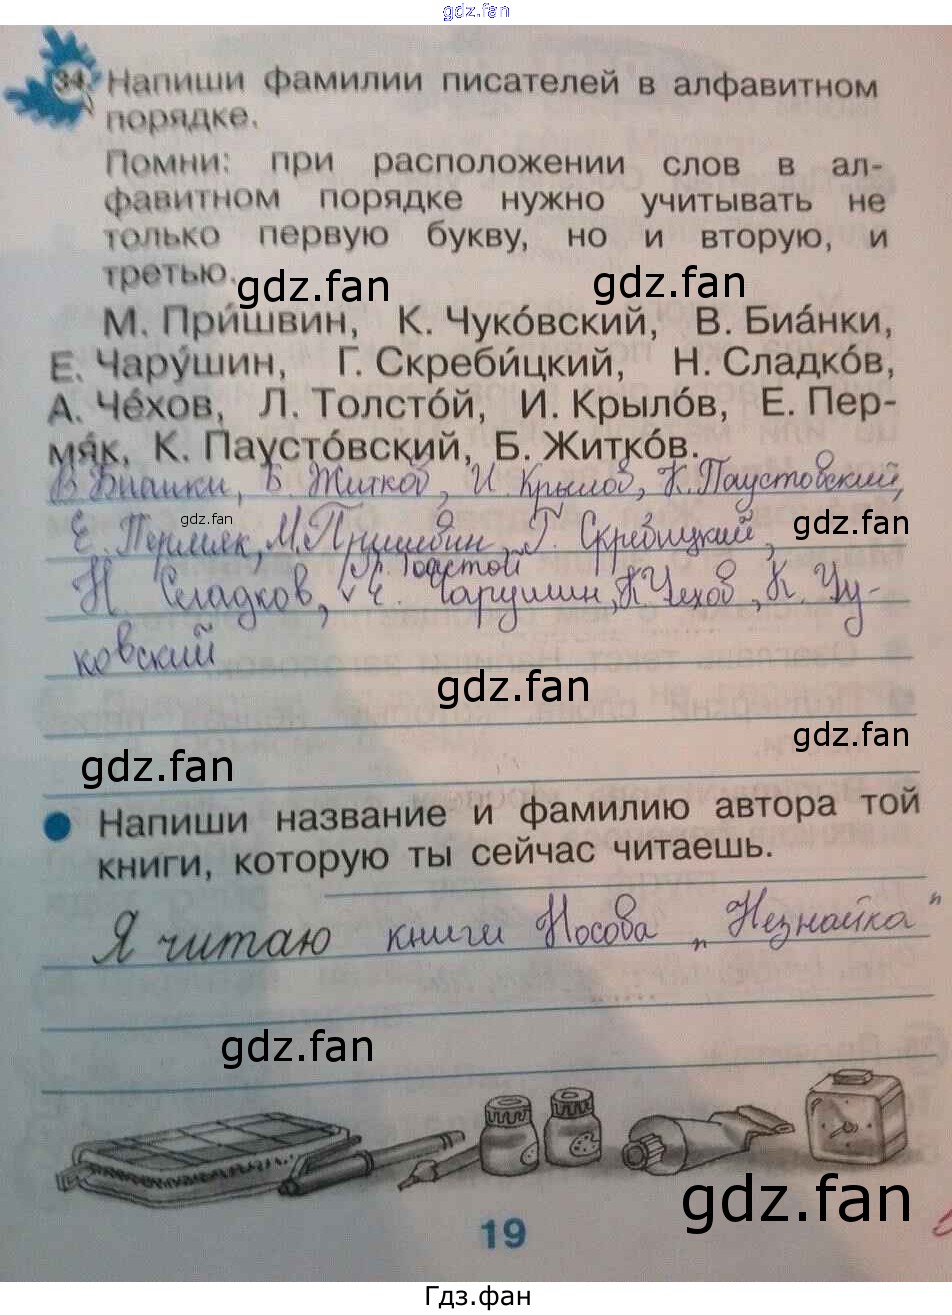 gdz.fan
34. Напиши фамилии писателей в алфавитном
порядке.
Помни: при расположении слов в ал-
фавитном порядке нужно учитывать не
только первую букву, но и вторую, и
третью.
gdz.fan
gdz.fan
М. При́швин, К. Чуко́вский, В. Биа́нки,
Е. Чару́шин, Г. Скреби́цкий, Н. Сладко́в,
А. Че́хов, Л. Толсто́й, И. Крыло́в, Е. Пер-
мя́к, К. Паусто́вский, Б. Житко́в.
В. Бианки, Б. Житков, И. Крылов, К. Паустовский,
gdz.fan
gdz.fan
Е. Пермяк, М. Пришвин, Г. Скребицкий,
Толстой
Н. Сладков, √ Е. Чарушин, К. Чехов, К. Чу-
ковский
gdz.fan
gdz.fan
gdz.fan
Напиши название и фамилию автора той
книги, которую ты сейчас читаешь.
Я читаю книги Носова „Незнайка"
gdz.fan
gdz.fan
19
Гдз.фан